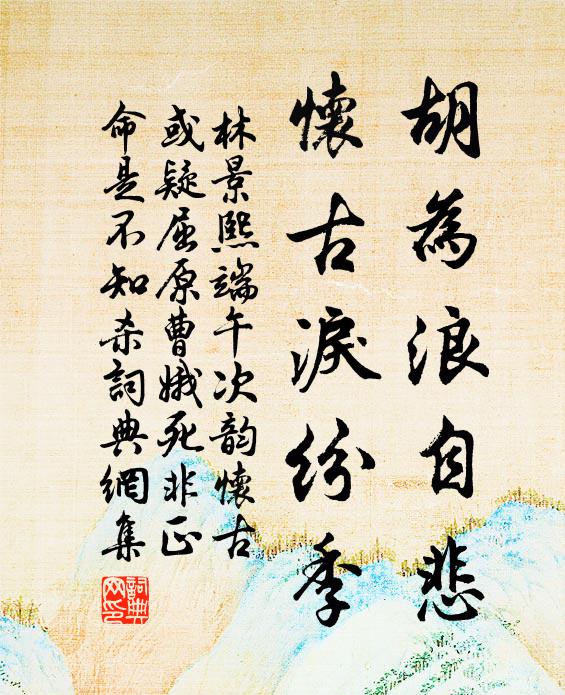 胡為浪自悲
懷古淚紛季
林景熙端午次韵懷古
或疑屈原曹娥死非正
命是不知杀詞典網集
詞典网印